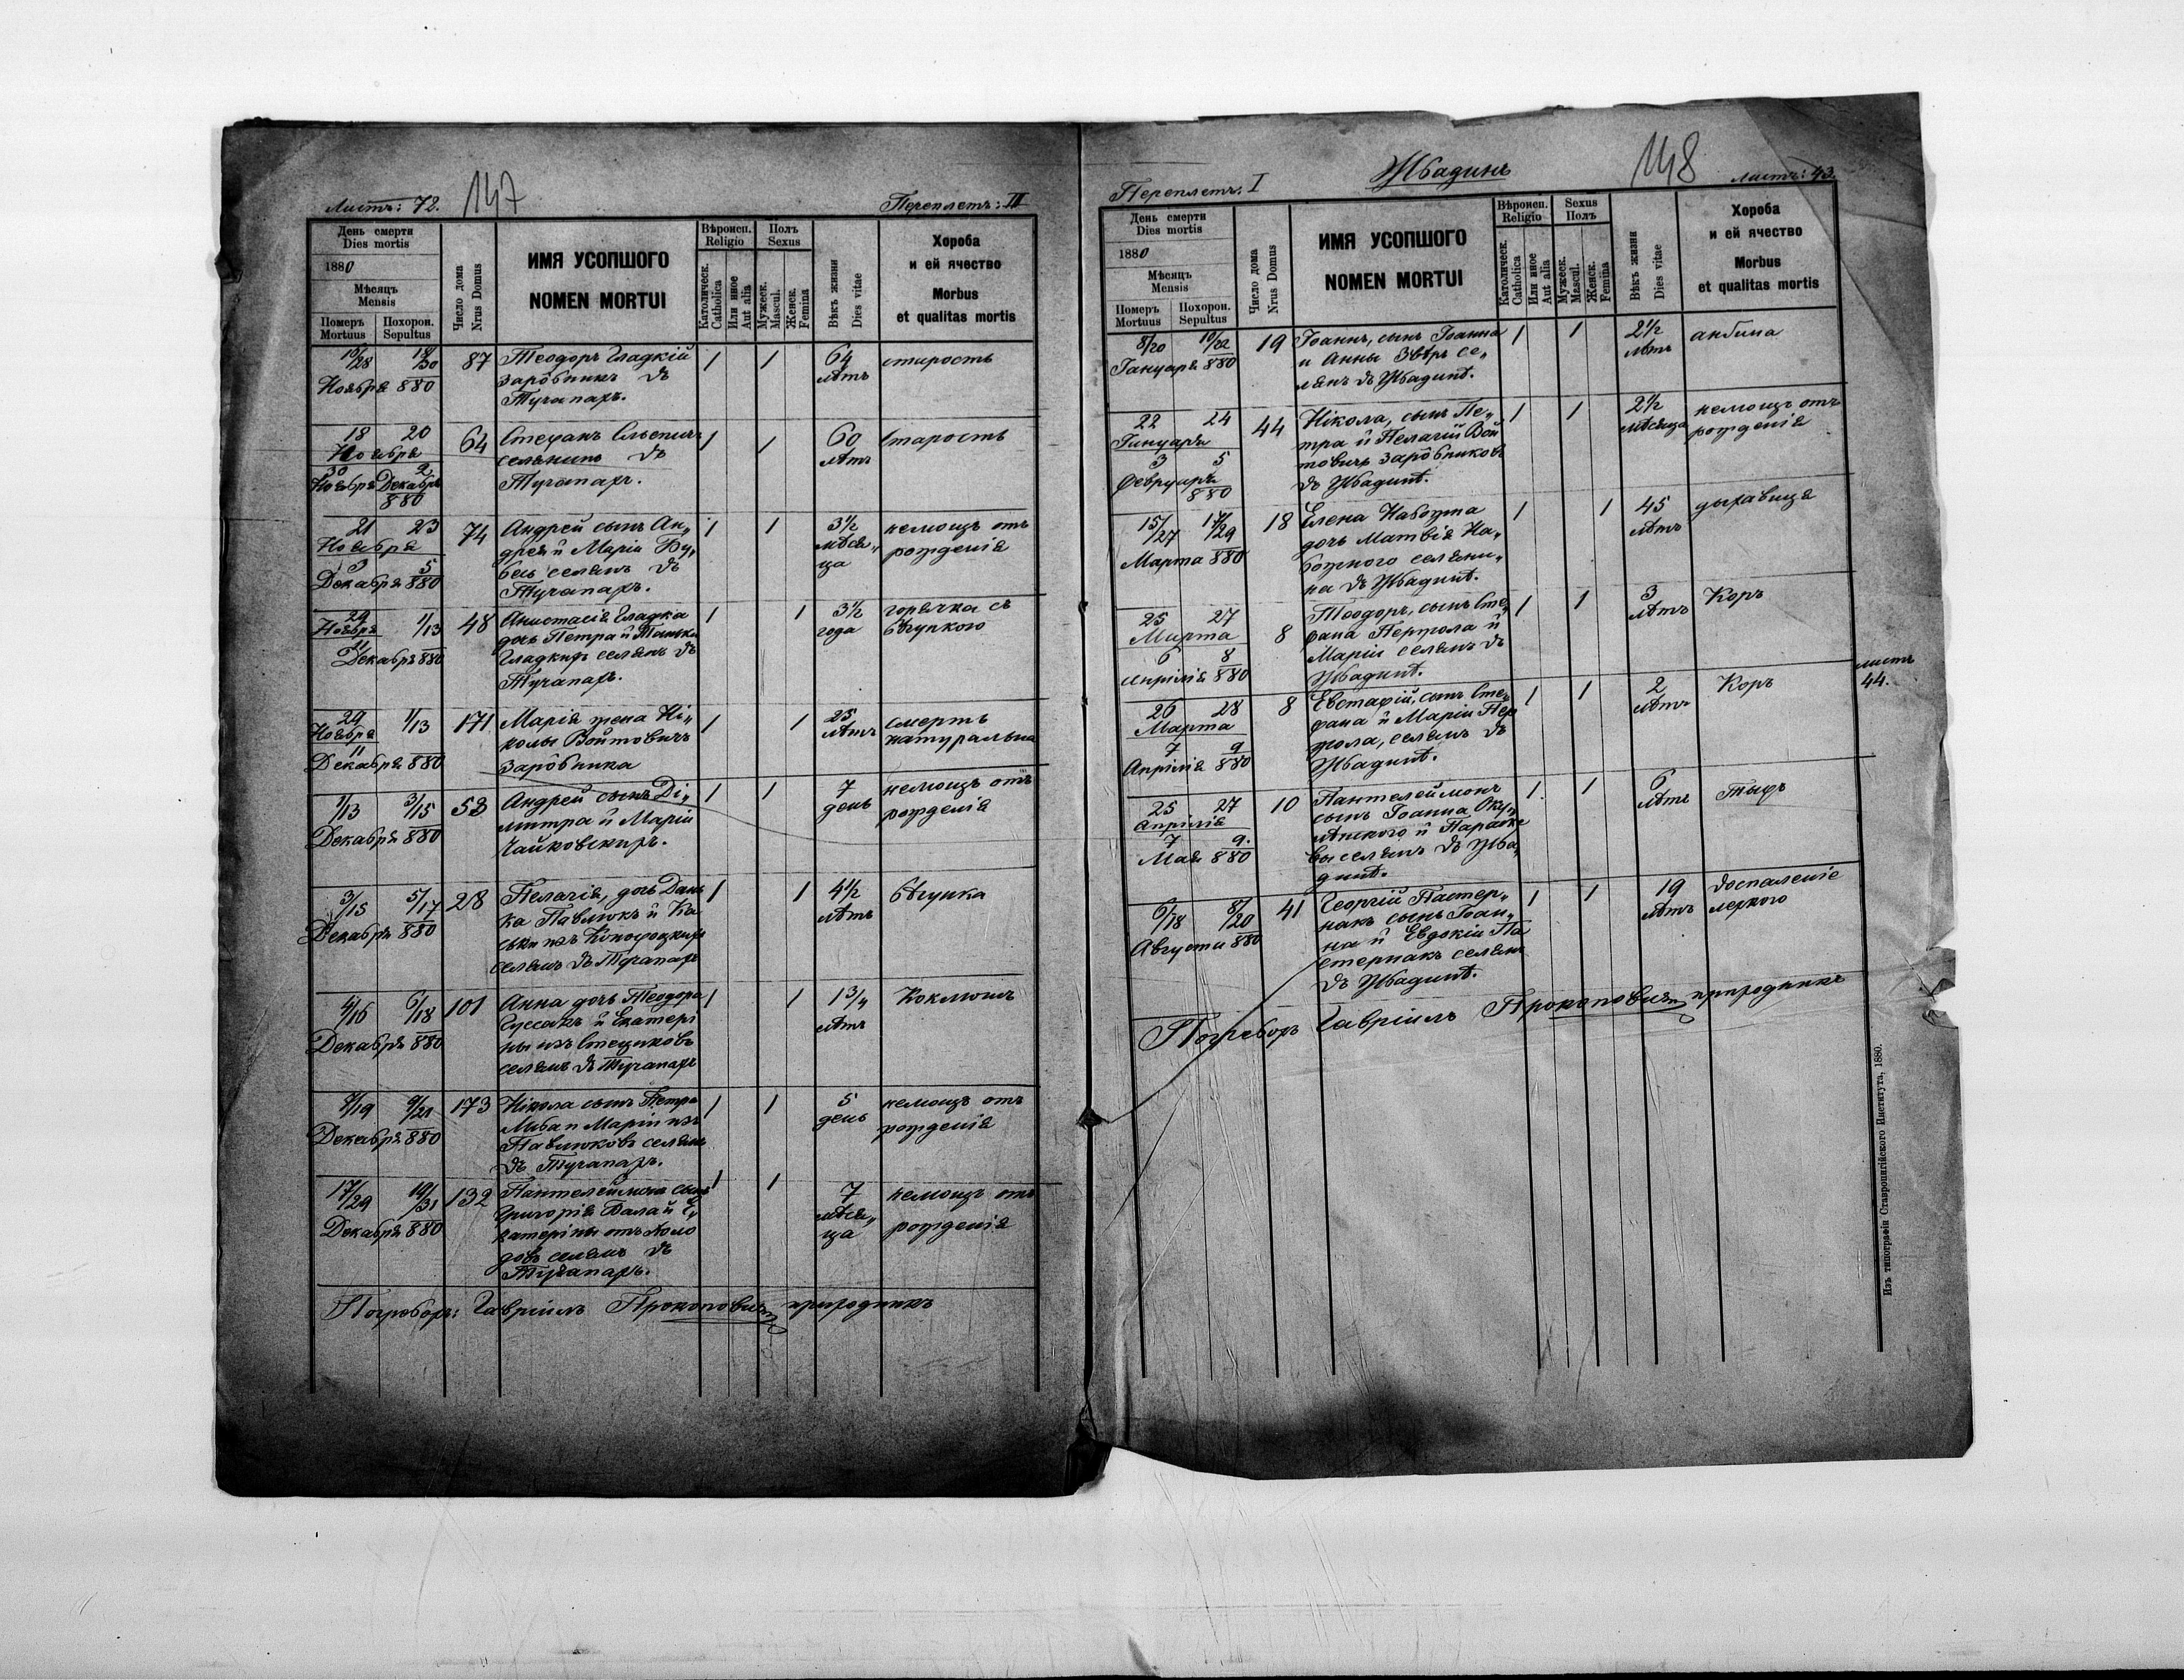 Листъ: 72.
147
Переплетъ: III
День смерти
Dies mortis
1880
Мѣсяцъ
Mensis
Померъ Mortuus
Похорон. Sepultus
Число дома
Nrus Domus
ИМЯ УСОПШОГО
NOMEN MORTUI
Вѣроисп.
Religio
Католическ.
Catholica
Или иное
Aut alia
Полъ
Sexus
Мужеск.
Mascul.
Женск.
Femina
Вѣкъ жизни
Dies vitae
Хороба
и ей ячество
Morbus
et qualitas mortis
16/28 18/30 87 Теодоръ Гладкій 1 1 64 старость
Ноября 880 зарôбникъ въ лѣтъ
Тучапахъ.
18 20 64 Стефанъ 1 1 60 старость
Ноября селянинъ въ лѣтъ
30 2 Тучапахъ.
Ноября Декабря
880
21 23 74 Андрей сынъ Ан„ 1 1 3½ немощь отъ
Ноября дрея и Маріи мѣся„ рожденія
3 5 селянъ въ ца
Декабря 880 Тучапахъ.
29 1/13 48 Анастасія Гладка 1 1 3½ горячка съ
Ноября дочь Петра и года бѣгункою
11 Гладкихъ селянъ въ
Декабря 880 Тучапахъ.
29 1/13 171 Марія жена Ні„ 1 1 25 смерть
Ноября колы Войтовичъ лѣтъ натуральна
11 зарôбника
Декабря 880
1/13 3/15 53 Андрей сынъ Ді„ 1 1 7 немощь отъ
Декабря 880 митра и Маріи день рожденія
Чайковскихъ.
3/15 5/17 28 Пелагія, дочь Дань 1 1 4½ бѣгунка
Декабря 880 ка Павлюкъ и Ка лѣтъ
ськи изъ
селянъ въ Тучапахъ
4/16 6/18 101 Анна дочь Теодора 1 1 1¾ Коклюшъ
Декабря 880 Гуссакъ и Екатери лѣтъ
ны изъ Стецюковъ
селянъ въ Тучапахъ
7/19 9/21 173 Нікола сынъ Петра 1 1 5 немощь отъ
Декабря 880 и Маріи изъ день рожденія
Павлюковъ селянъ
въ Тучапахъ.
17/29 19/31 132 Пантелеймонъ сынъ 1 1 7 немощь отъ
Декабря 880 Григорія Бала и Е„ мѣся„ рожденія
катерины отъ ца
селянъ въ
Тучапахъ.
Погребохъ: Гавріилъ Прокоповичъ приходникъ
Жбадинъ
148
Переплетъ: I
листъ: 43.
День смерти
Dies mortis
1880
Мѣсяцъ
Mensis
Померъ Mortuus
Похорон. Sepultus
Число дома
Nrus Domus
ИМЯ УСОПШОГО
NOMEN MORTUI
Вѣроисп.
Religio
Католическ.
Catholica
Или иное
Aut alia
Sexus
Полъ
Мужеск.
Mascul.
Женск.
Femina
Вѣкъ жизни
Dies vitae
Хороба
и ей ячество
Morbus
et qualitas mortis
8/20 10/22 19 Іоаннъ, сынъ Іоанна 1 1 2½ ангина
Януаря 880 и Анны Звѣръ се„ лѣтъ
лянъ въ Жбадинѣ.
22 24 44 Нікола, сынъ Пе„ 1 1 2½ немощь отъ
Януаря тра и Пелагіи Вой мѣсяца рожденія
3 5 товичъ зарôбниковъ
Февруаря въ Жбадинѣ.
880
15/27 17/29 18 Елена Набожна 1 1 45 дыхавица
Марта 880 дочь Матвія На„ лѣтъ
божного селяни„
на въ Жбадинѣ.
25 27 8 Теодоръ, сынъ Сте„ 1 1 3 Коръ
Марта фана и лѣтъ
6 8 Маріи селянъ въ
Априлія 880 Жбадинѣ.
листъ
44.
26 28 8 Евстафій, сынъ Сте„ 1 1 2 Коръ
Марта фана и Маріи лѣтъ
7 9 селянъ въ
Априлія 880 Жбадинѣ.
25 27 10 Пантелеймонъ 1 1 6 Тыфъ
Априлія сынъ Іоанна Оку„ лѣтъ
7 9. и Параске
Мая 880 вы селянъ въ Жба„
динѣ.
6/18 8/20 41 Георгій Пастер„ 1 1 19 воспаленіе
Августа 880 накъ сынъ Іоан„ лѣтъ легкого
на и Евдокіи Па
стернакъ селянъ
въ Жбадинѣ.
Погребохъ Гавріилъ Прокоповичъ приходникъ
Изъ типографіи Ставропигійского Института, 1880.